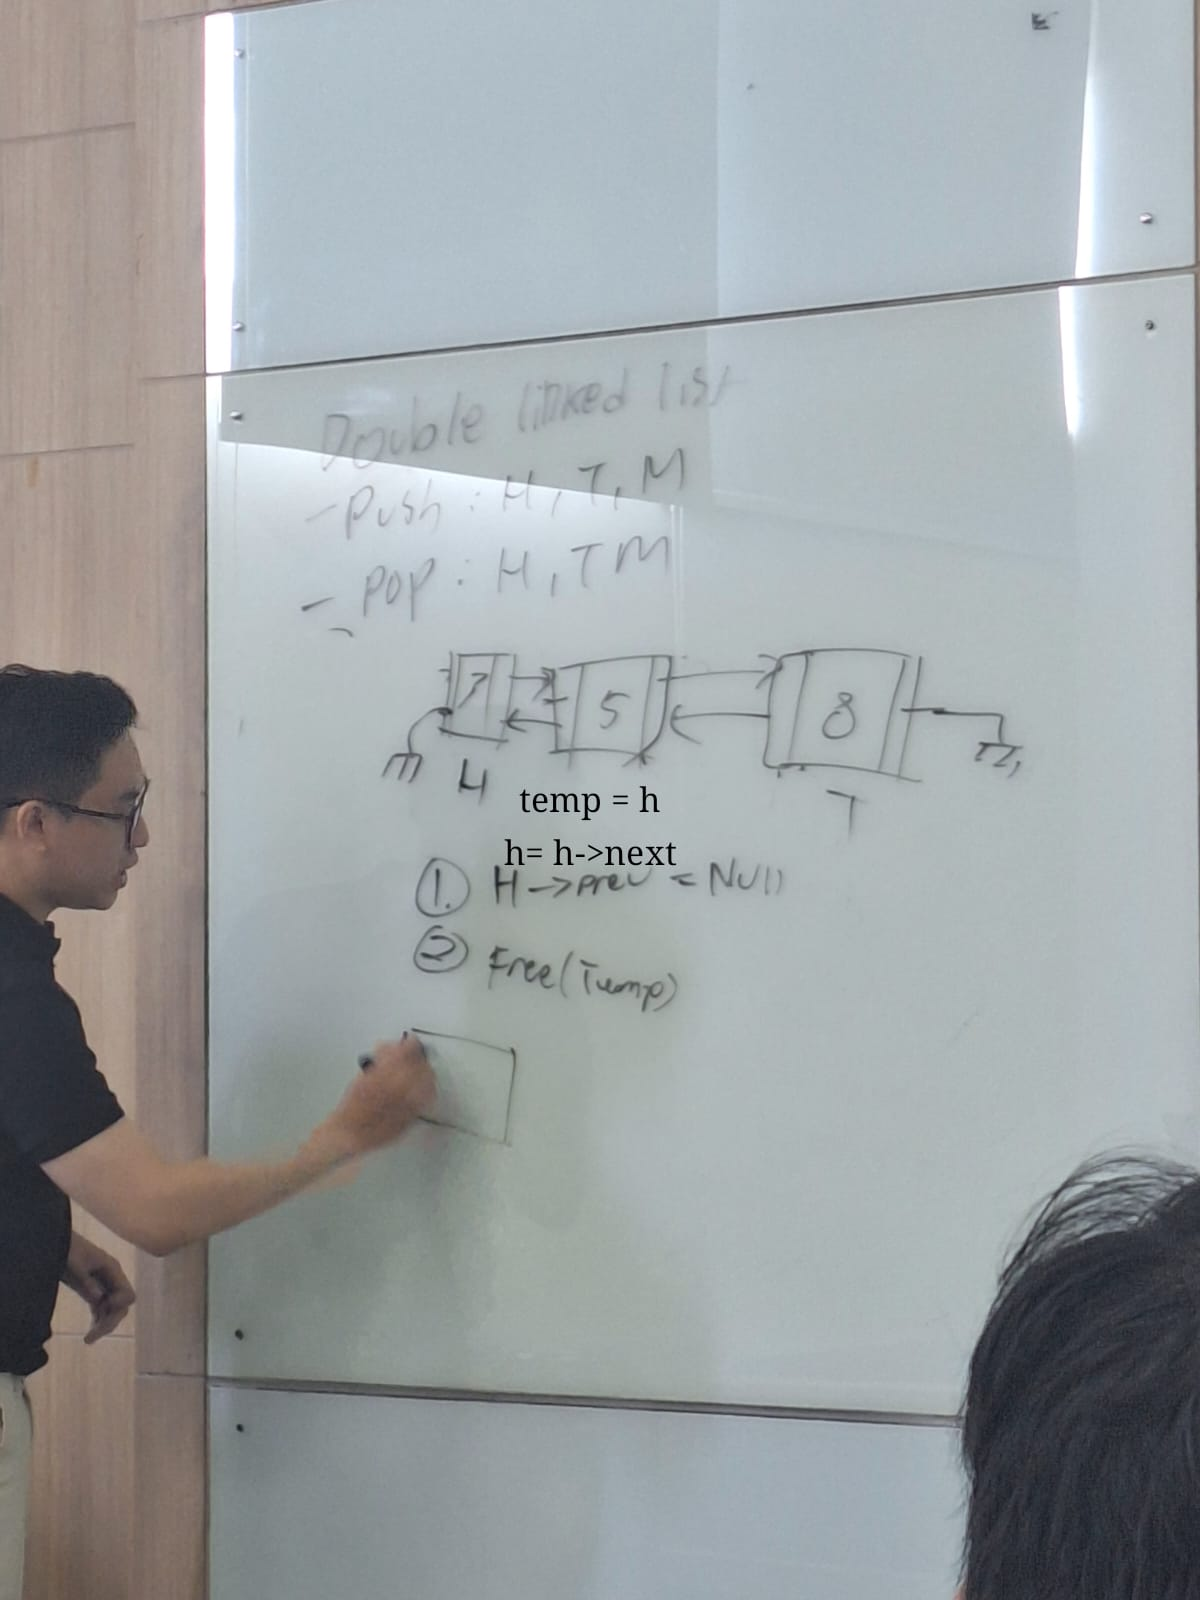 Double linked list
- Push : H, T, M
- Pop : H, T M
5 8
H T
temp = h
h= h->next
1. H->prev = Null
2 Free(Temp)